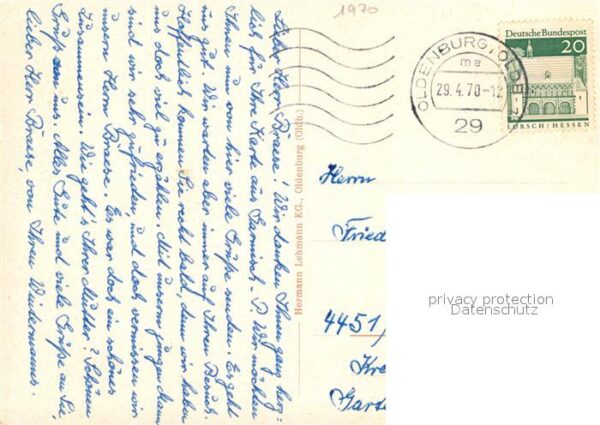 1970
Lieber Herr Braese! Wir danken Ihnen ganz herz-
lich für Ihre Karte aus Garmisch-P. Wir möchten
Ihnen nun von hier viele Grüße senden. Es geht
uns gut. Wir warten aber immer auf Ihren Besuch.
Hoffentlich kommen Sie recht bald, denn wir haben
uns doch viel zu erzählen. Mit unserm jungen Mann
sind wir sehr zufrieden, und doch vermissen wir
unsern Herrn Braese. Es war doch ein schönes
Zusammensein. Wie geht's Ihrer Mutter? Schönen
Gruß von uns. Alles Gute und viele Grüße an Sie,
lieber Herr Braese, von Ihren
Hermann Lehmann KG., Oldenburg (Oldb.)
OLDENBURG, OLDB
me
29.4.70-12
29
Deutsche Bundespost
20
LORSCH/HESSEN
Herrn
Fried
4451/
Kre
Garde
privacy protection
Datenschutz